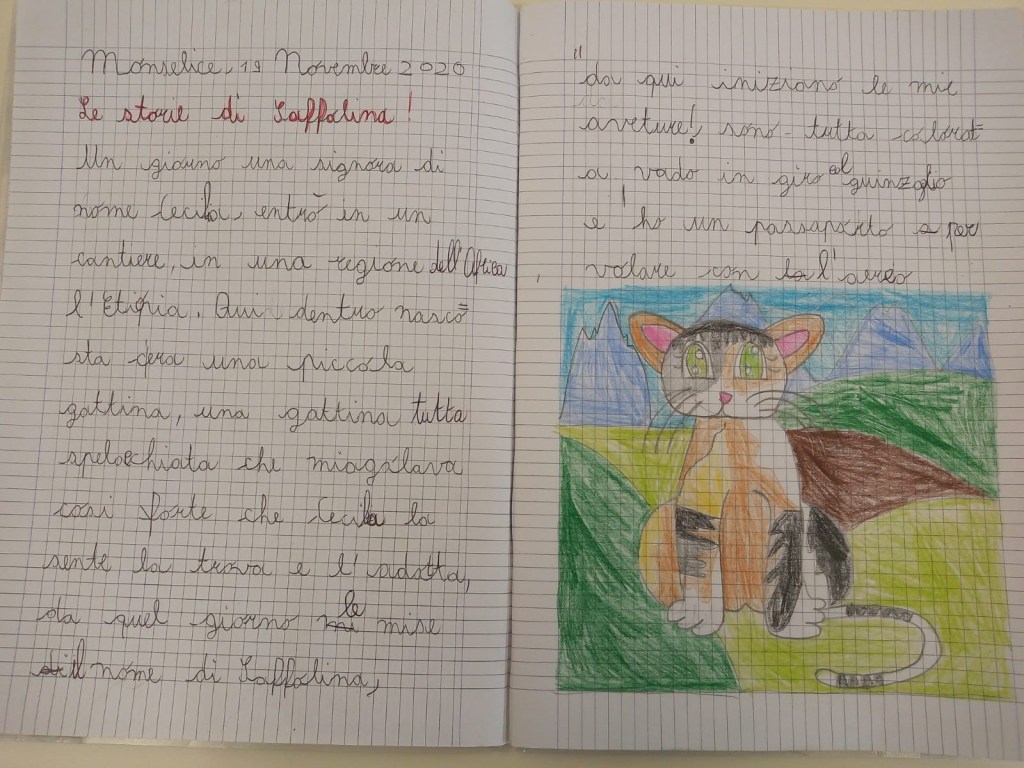 Monselice, 19 Novembre 2020
Le storie di Saffalina!
Un giorno una signora di
nome Cecila, entrò in un
cantiere, in una regione dell'Africa,
l'Etiopia. Qui dentro nasco=
sta c'era una piccola
gattina, una gattina tutta
spelacchiata che miagalava
cosi forte che Cecila la
sente la trova e l'adotta,
da quel giorno le mise
il nome di Saffalina,
"
da qui iniziano le mie
aveture!, sono tutta colorat
a vado in giro al guinzaglio
e ho un passaporto per
volare con l'aereo